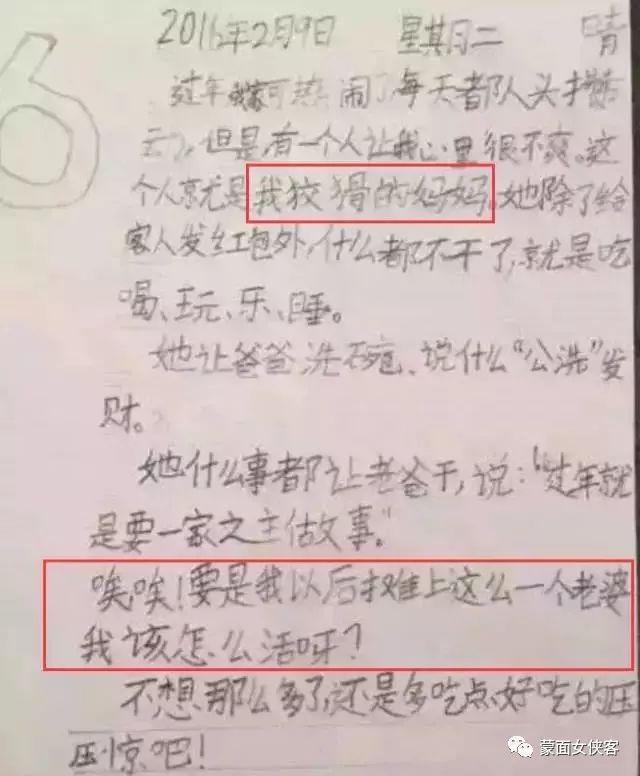 6
2016年2月9日 星期二 晴
过年我家可热闹了每天都队头挤
云)，但是，有一个人让我心里很不爽。这
个人就是我狡猾的妈妈，她除了给
客人发红包外，什么都不干了，就是吃
喝、玩、乐、睡。
她让爸爸洗碗、说什么"公洗"发
财。
她什么事都让老爸干，说："过年就
是要一家之主做故事。"
唉唉！要是我以后摊上这么一个老婆
我该怎么活呀？
不想那么多了，还是多吃点好吃的压
压惊吧！
蒙面女侠客